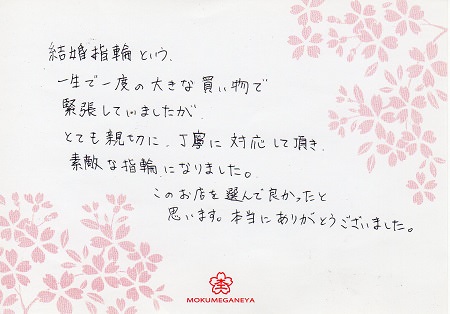 結婚指輪という、
一生で一度の大きな買い物で
緊張していましたが、
とても親切に、丁寧に対応して頂き、
素敵な指輪になりました。
このお店を選んで良かったと
思います。本当にありがとうございました。
MOKUMEGANEYA